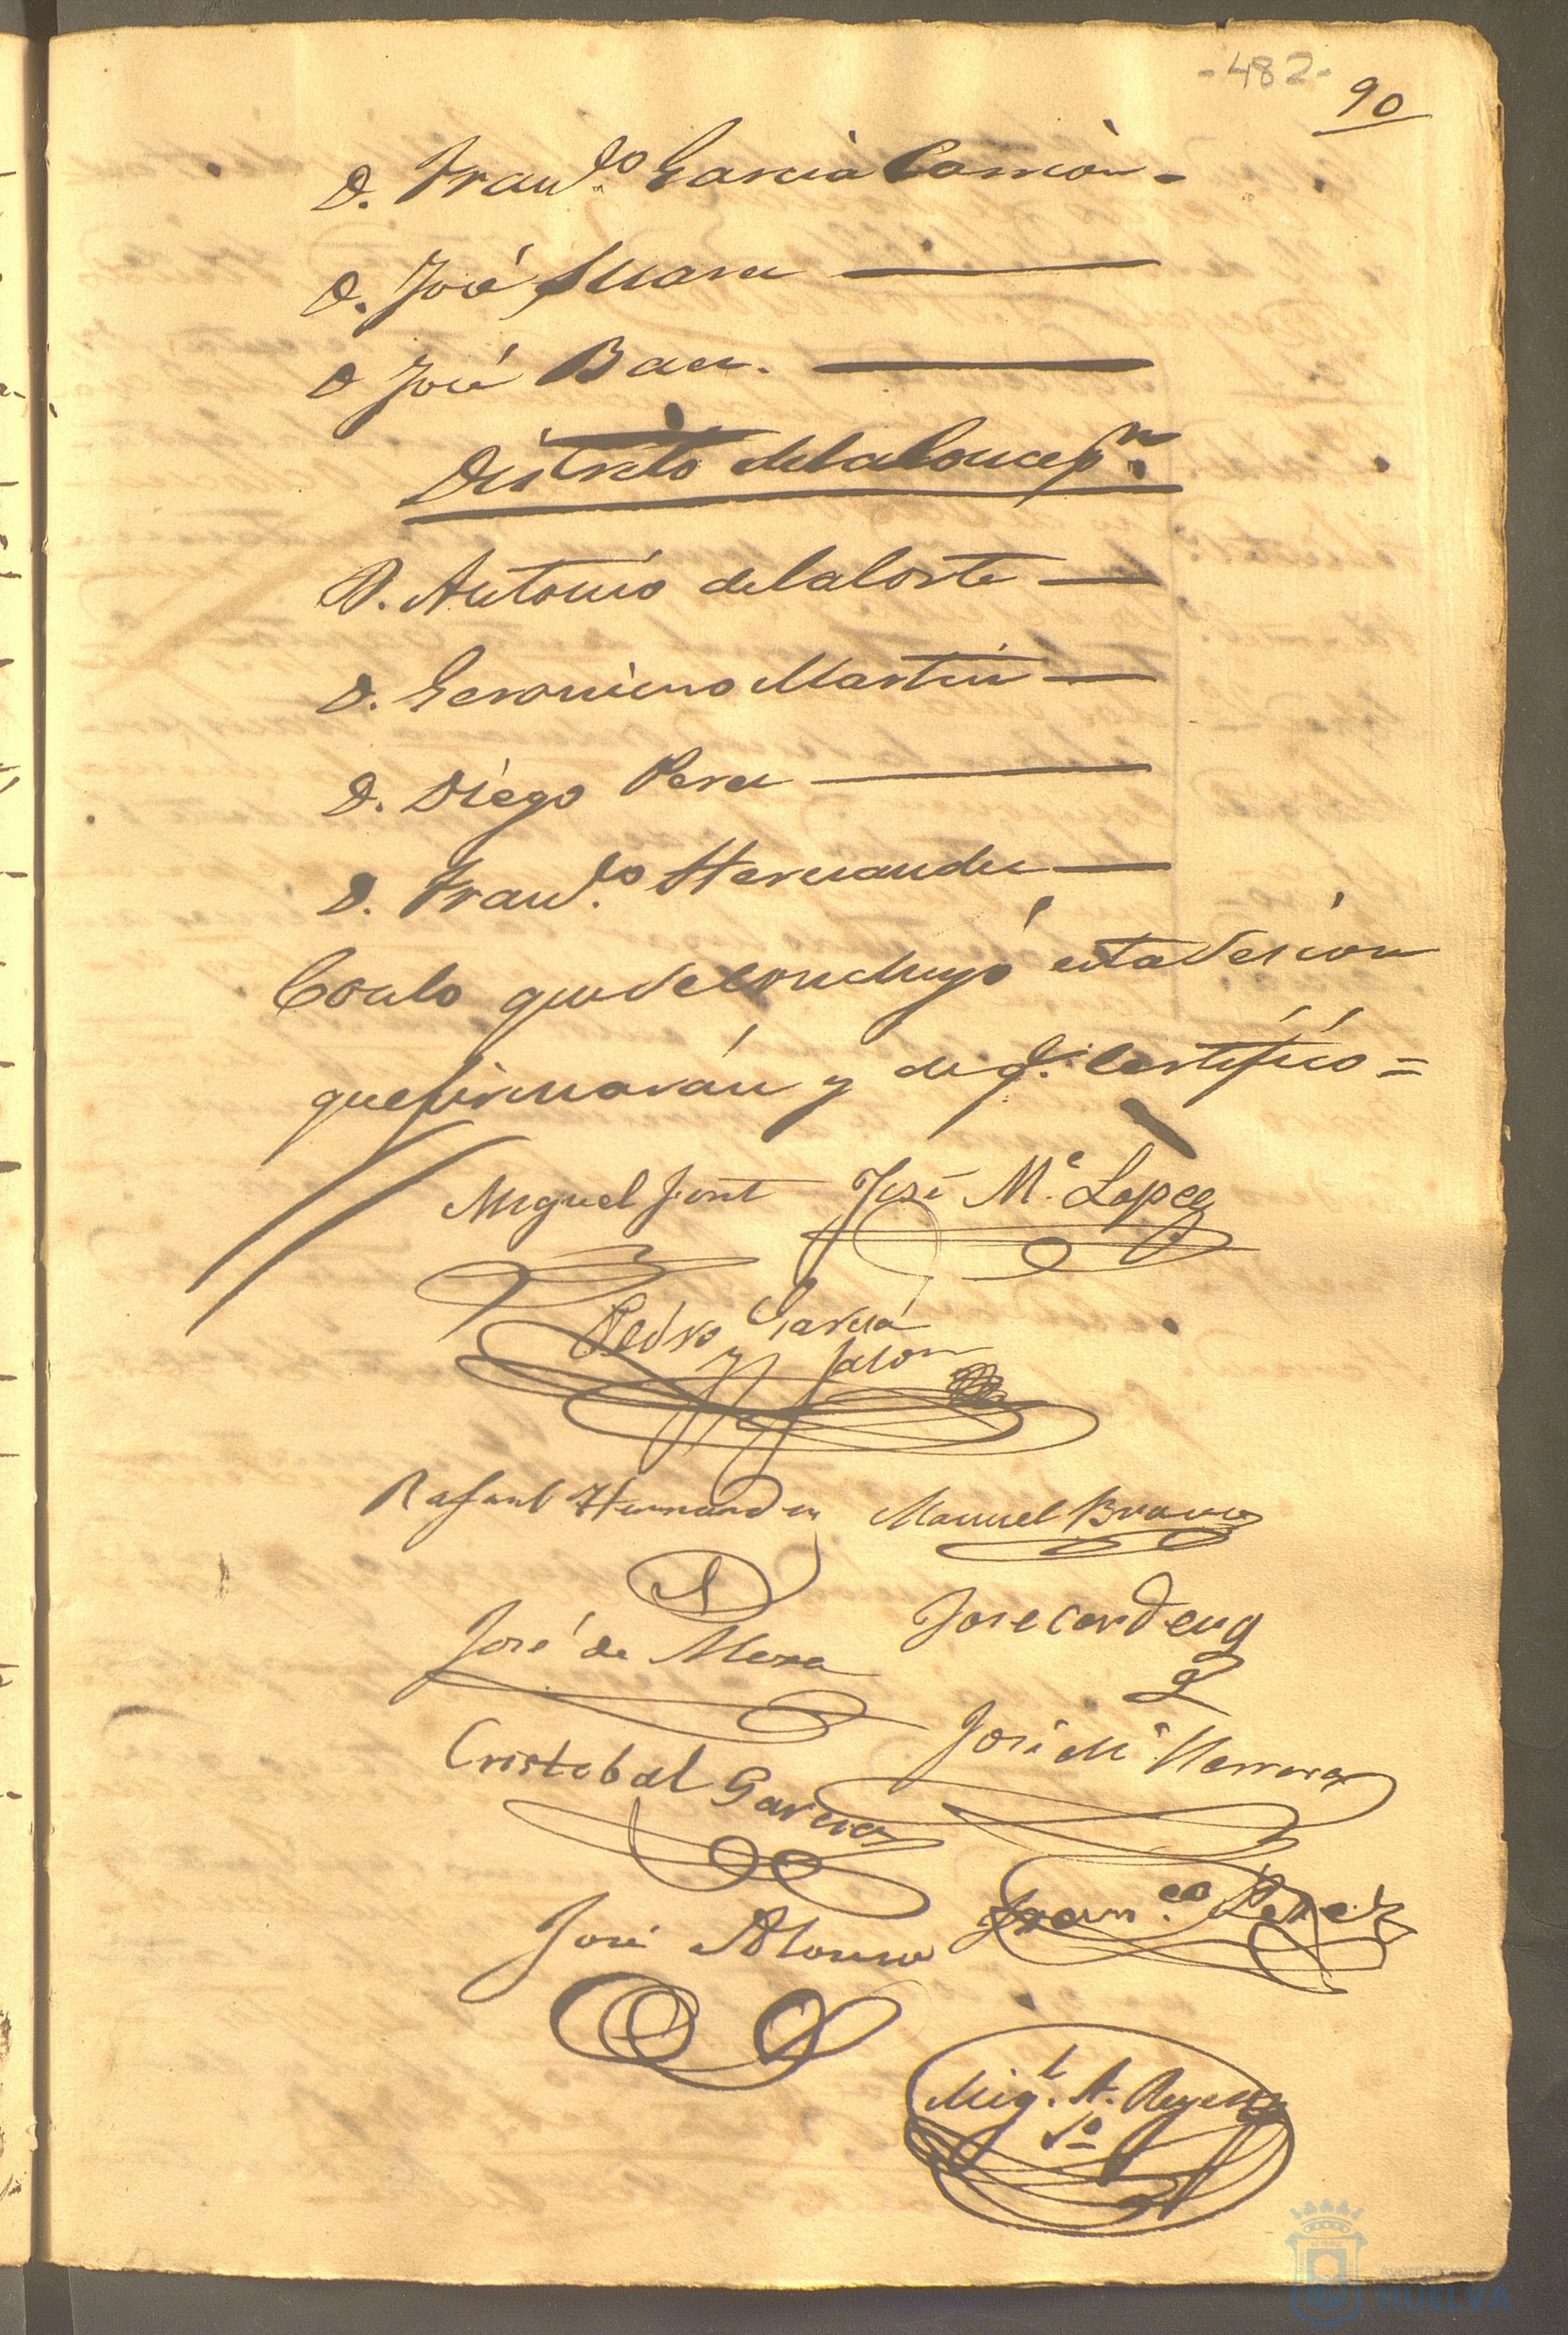 -482-
90
D. Fran.co Garcia Carrión.
D. José Suarez
D José Baez.
Distrito de la Concepn.
D. Antonio de la Corte
D. Geronimo Martin
D. Diego Perez
D. Fran.co Hernandez
Con lo que se concluyó esta Sesion
que firmarán y de q.e certifico =
Miguel Font José M.a Lopez
Pedro Garcia
y Jalon
Rafael Hernandez Manuel Bravo
José de Mora Jose Cardena
Cristobal Garcia José M.a Herrera
José Alonso Fran.co Perez
Mig.l A. Reyes
So
Ayuntamiento
HUELVA